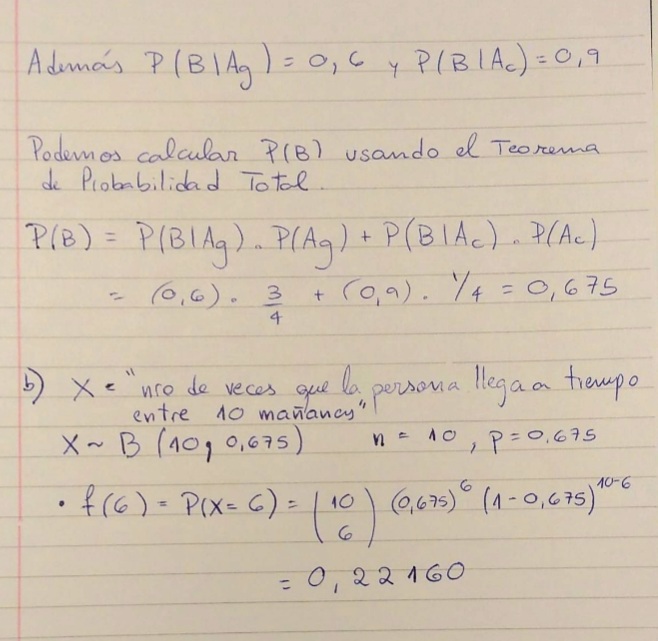 Además P(B|Ag) = 0,6 y P(B|Ac) = 0,9
Podemos calcular P(B) usando el Teorema
de Probabilidad Total.
P(B) = P(B|Ag) . P(Ag) + P(B|Ac) . P(Ac)
= (0,6) . 3/4 + (0,9) . 1/4 = 0,675
b) X = "nro de veces que la persona llega a tiempo
entre 10 mañanas"
X ~ B (10, 0,675) n = 10, p = 0,675
• f(6) = P(X = 6) = (10 6) (0,675)^6 (1 - 0,675)^10-6
= 0,22160